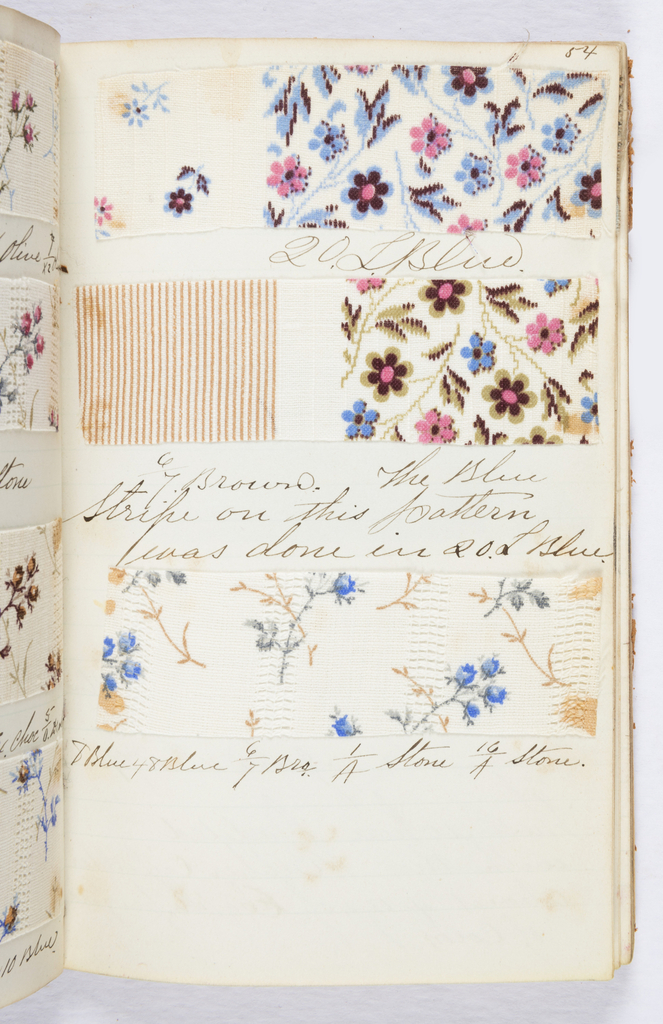 54
Olive
20. L Blue.
Stone
6/7 Brown. The Blue
Stripe on this pattern
was done in 20. L Blue.
Choc
8 Blue 48 Blue 6/7 Bro. 1/A Stone 16/A Stone.
10 Blue